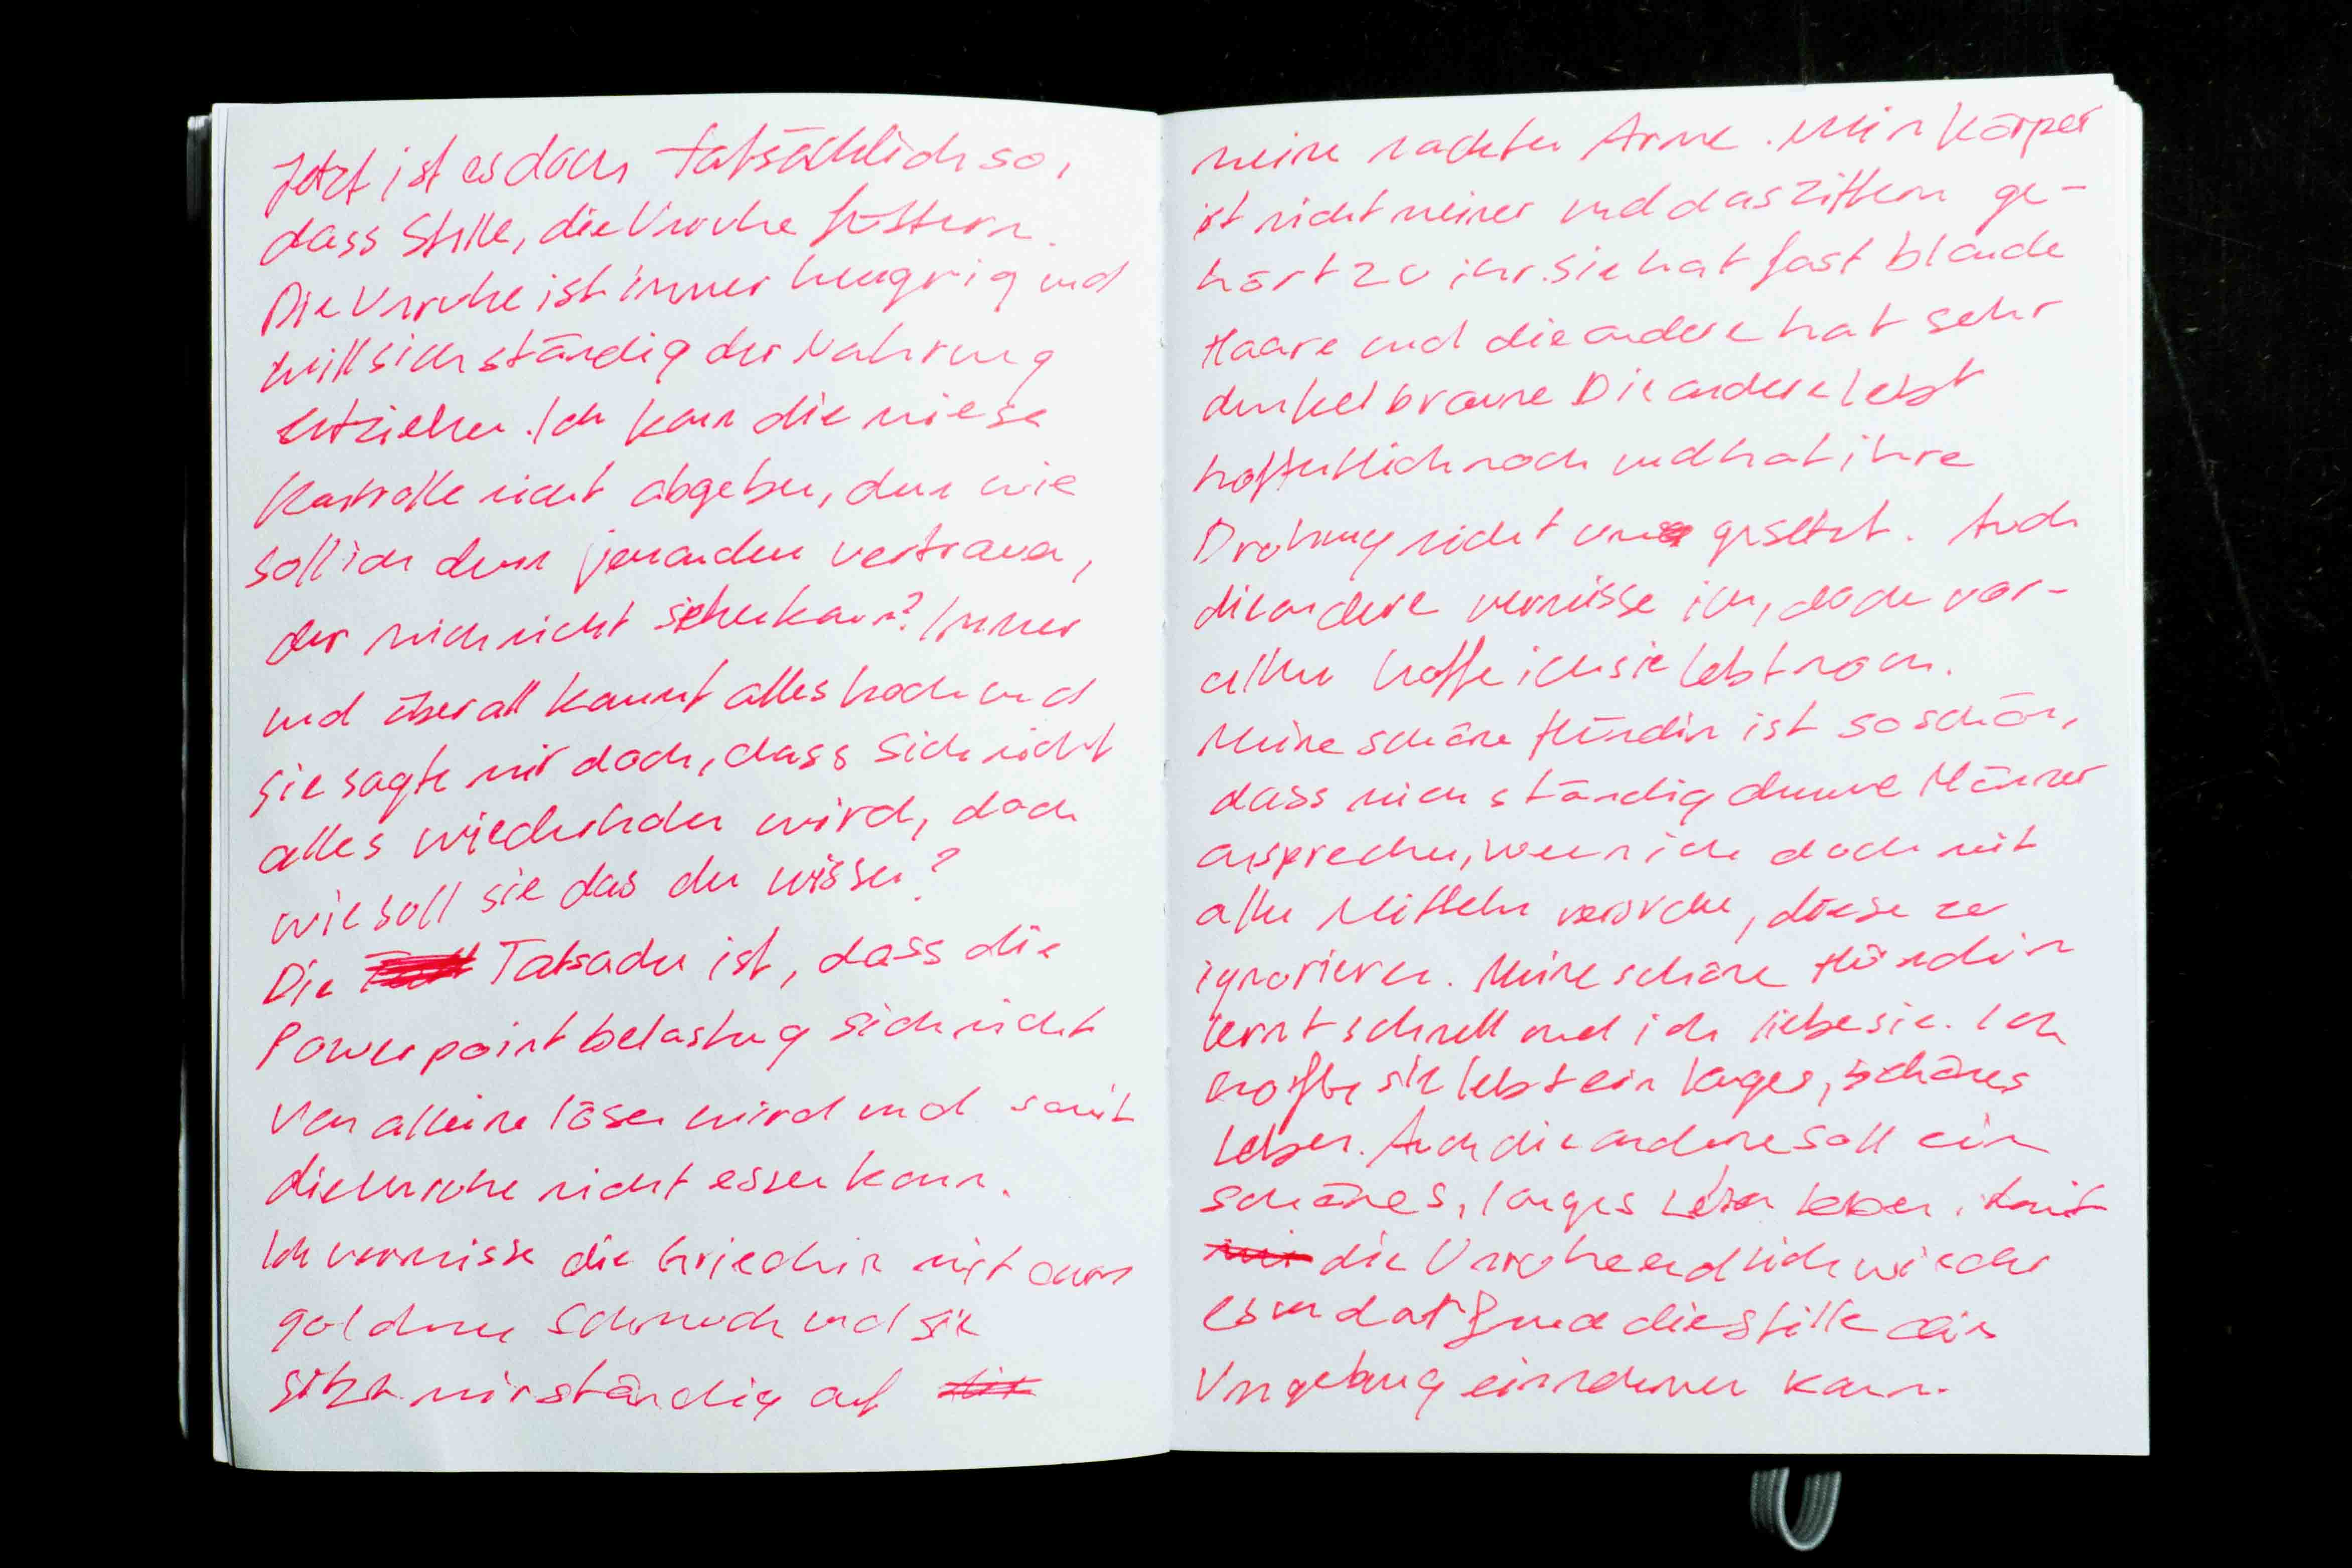 Jetzt ist es doch tatsächlich so,
dass Stille, die Unruhe füttern.
Die Unruhe ist immer hungrig und
will sich ständig der Nahrung
entziehen. Ich kann die miese
Kontrolle nicht abgeben, denn wie
soll ich denn jemanden vertrauen,
der mich nicht sehen kann? Immer
und überall kommt alles hoch und
sie sagte mir doch, dass sich nicht
alles wiederholen wird, doch
wie soll sie das den wissen?
Die Tatsache ist, dass die
Powerpointbelastung sich nicht
von alleine lösen wird und somit
die Unruhe nicht essen kann.
Ich vermisse die Griechin mit
goldenen Schmuck und sie
sitzt mir ständig auf
meine nackten Arme. Mein Körper
ist nicht meiner und das Zittern ge-
hört zu ihr. Sie hat fast blonde
Haare und die andere hat sehr
dunkel braune Die andere lebt
hoffentlich noch und hat ihre
Drohung nicht um gesetzt. Auch
die andere vermisse ich, doch vor-
allem hoffe ich sie lebt noch.
Meine schöne Hündin ist so schön,
dass mich ständig dumme Männer
ansprechen, wenn ich doch mit
allen Mitteln versuche, diese zu
ignorieren. Meine schöne Hündin
lernt schnell und ich liebe sie. Ich
hoffe sie lebt ein langes, schönes
Leben. Auch die andere soll ein
schönes, langes Leben leben, damit
die Unruhe endlich wieder
essen darf und die Stille die
Umgebung einnehmen kann.